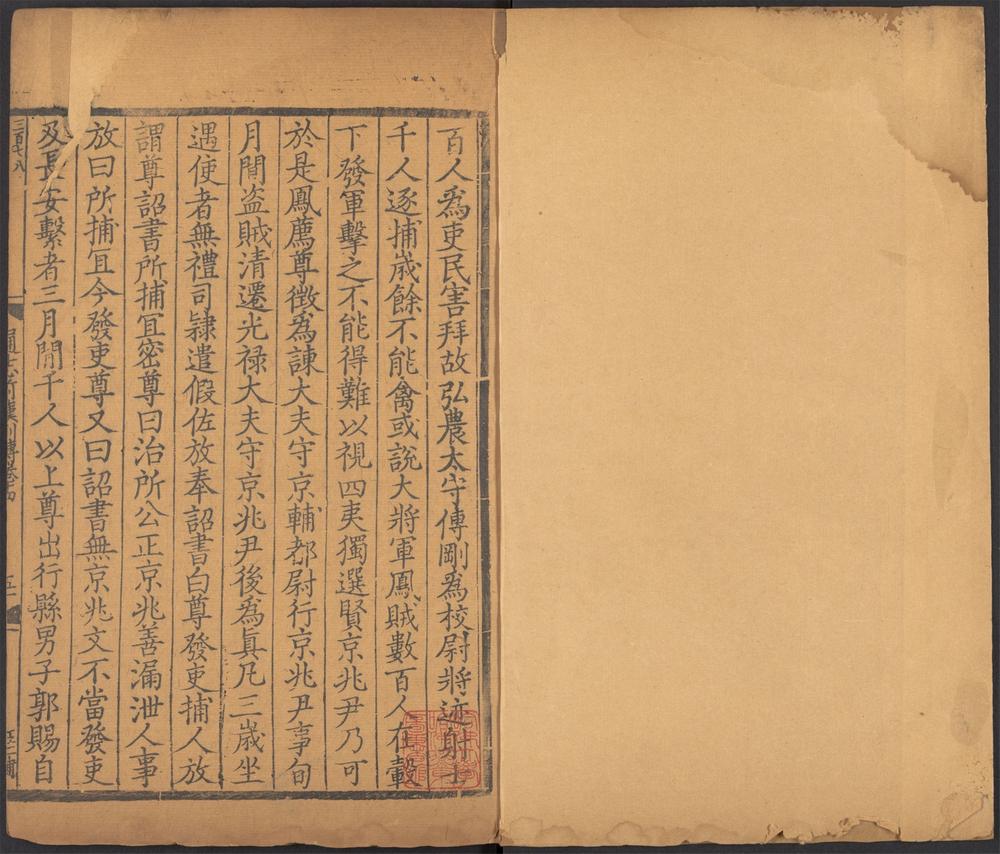 百人爲吏民害拜故弘農太守傅剛爲校尉將迹射士
千人逐捕歲餘不能禽或說大將軍鳳賊數百人在轂
下發軍擊之不能得難以視四夷獨選賢京兆尹乃可
於是鳳薦尊徵爲諫大夫守京輔都尉行京兆尹事旬
月間盜賊清遷光祿大夫守京兆尹後爲眞凡三歲坐
遇使者無禮司隸遣假佐放奉詔書白尊發吏捕人放
謂尊詔書所捕冝密尊曰治所公正京兆善漏泄人事
放曰所捕冝今發吏尊又曰詔書無京兆文不當發吏
及長安繫者三月間千人以上尊出行縣男子郭賜自
三百七八